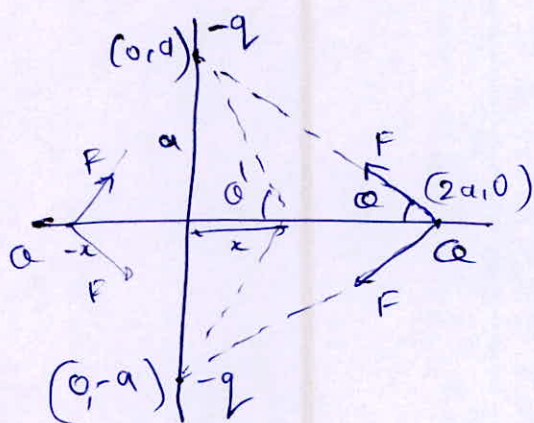 -q
(0,a)
a
F
F
θ'
θ
(2a,0)
Q
-x
x
Q
F
F
(0,-a)
-q